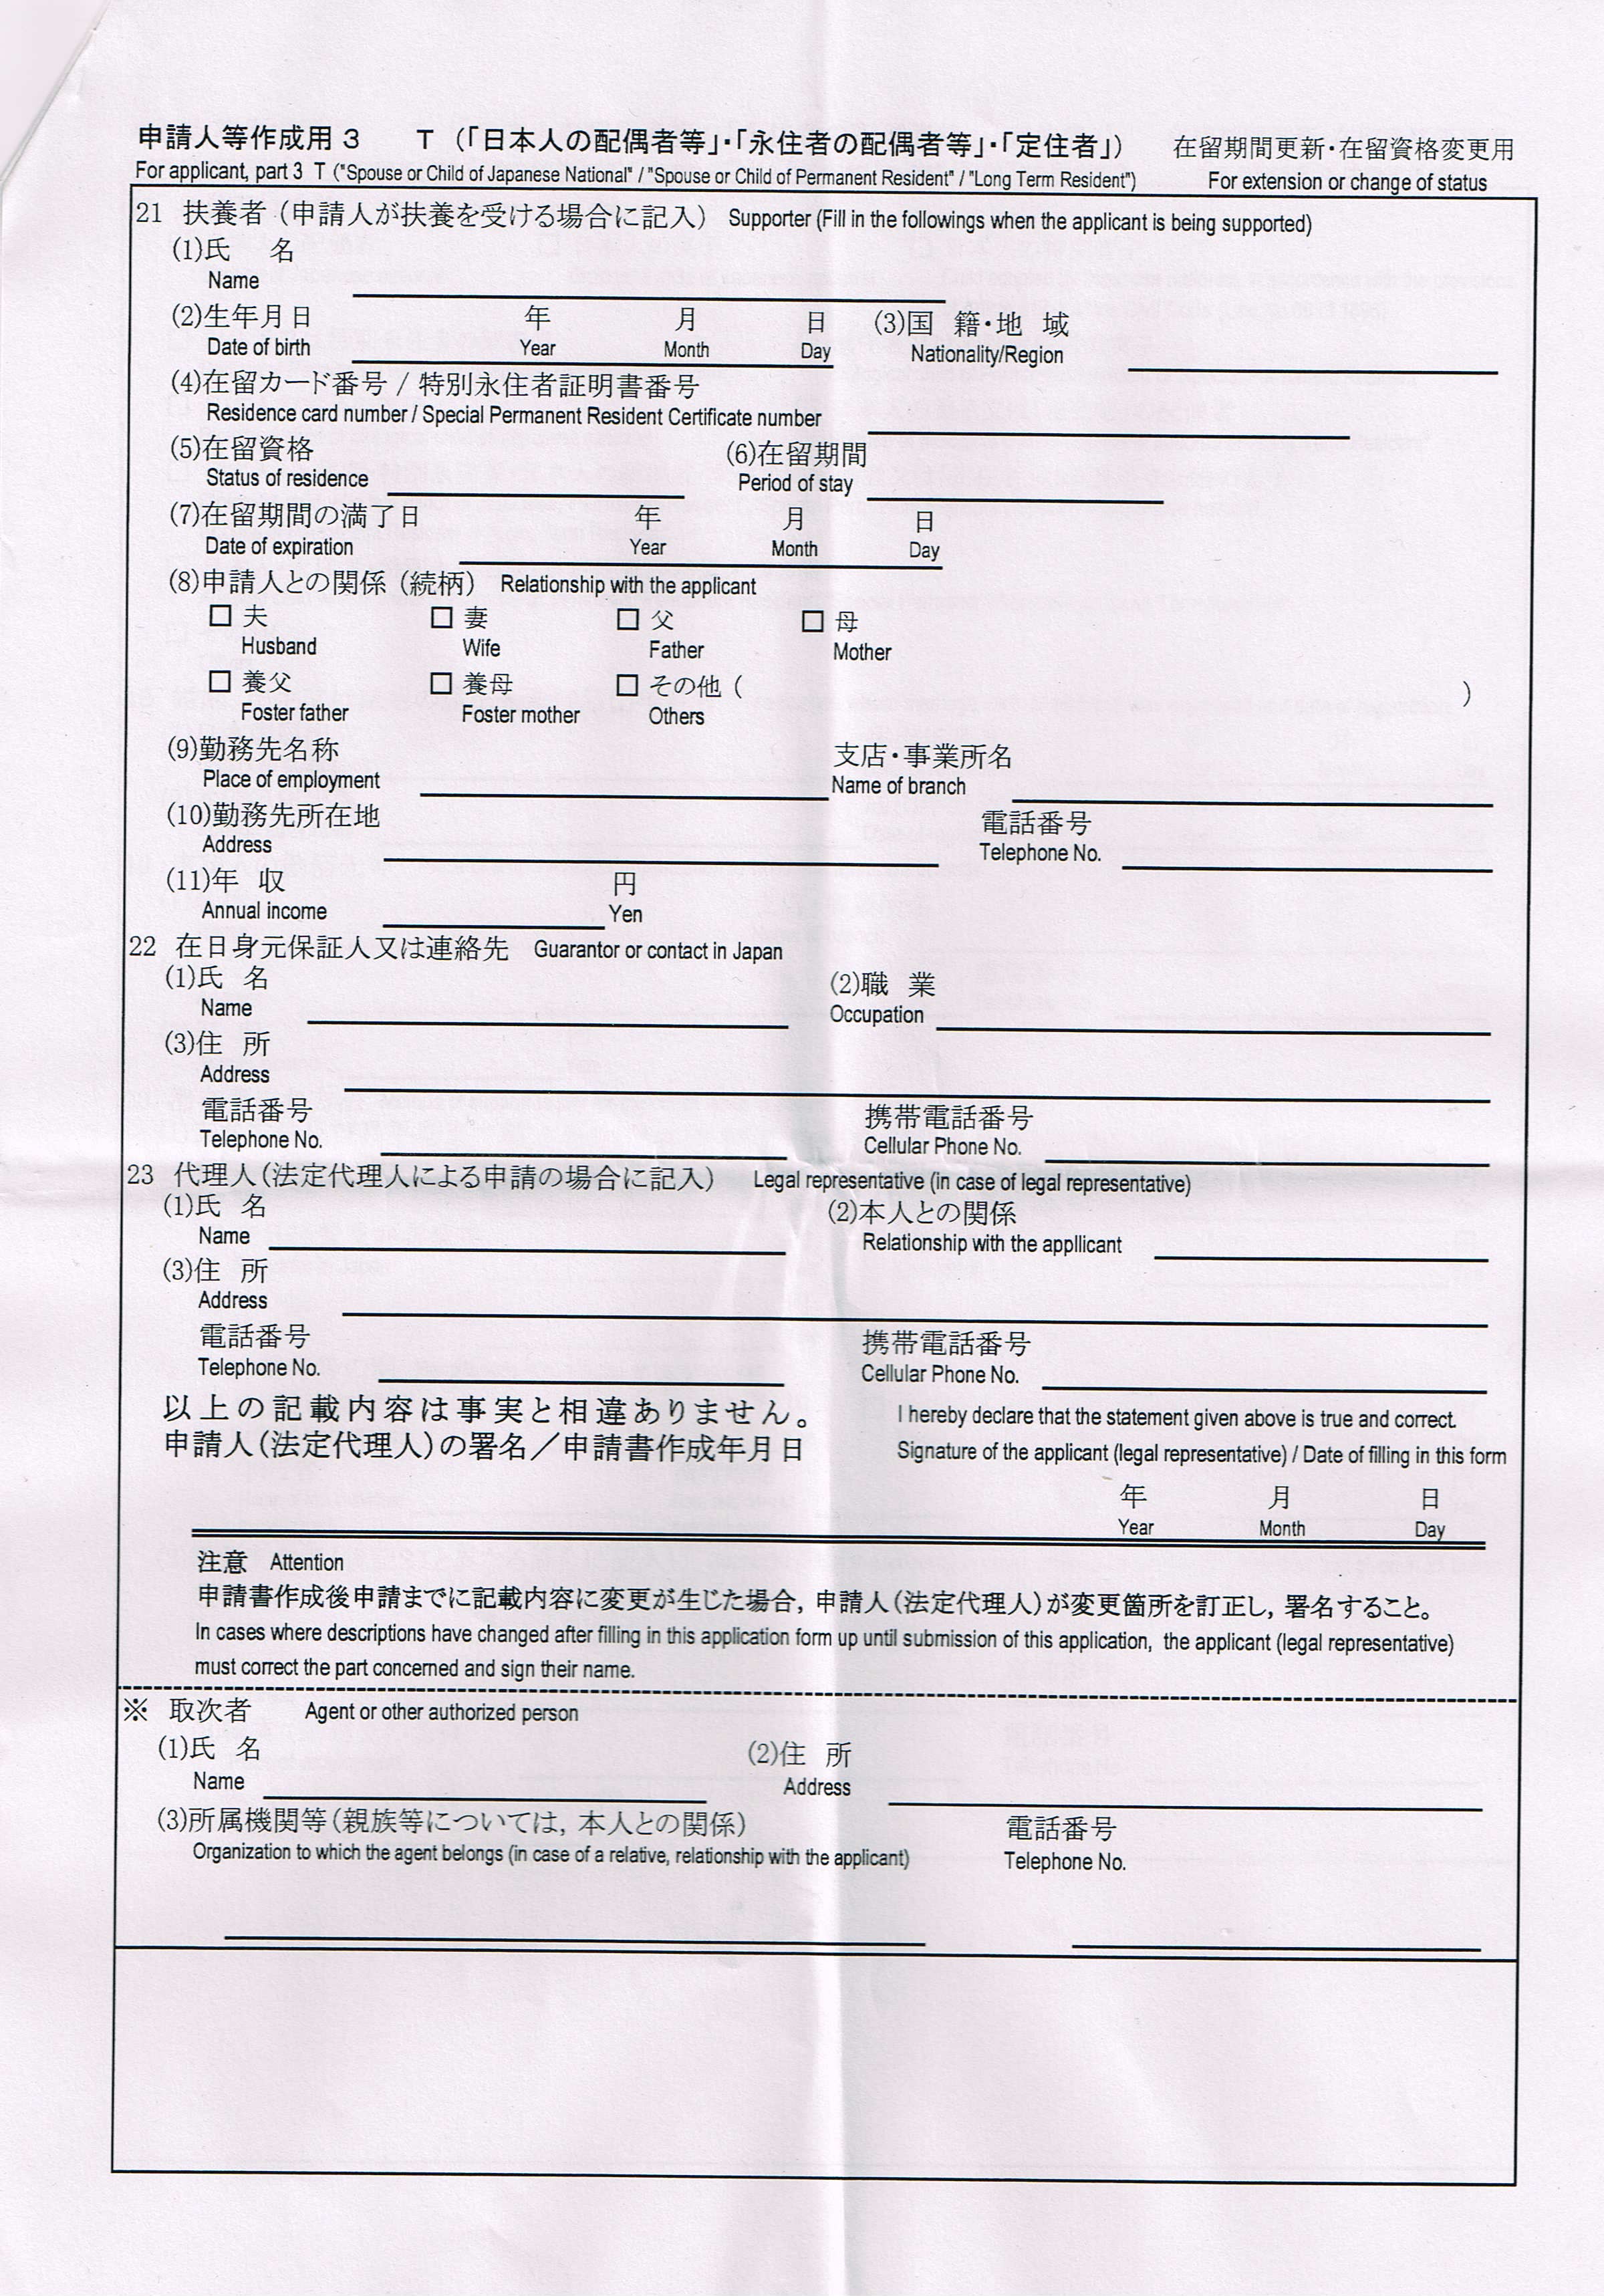 申請人等作成用 3　T （「日本人の配偶者等」・「永住者の配偶者等」・「定住者」）　在留期間更新・在留資格変更用
For applicant, part 3 T ("Spouse or Child of Japanese National" / "Spouse or Child of Permanent Resident" / "Long Term Resident")　For extension or change of status
21 扶養者（申請人が扶養を受ける場合に記入）　Supporter (Fill in the followings when the applicant is being supported)
(1)氏　名
Name
(2)生年月日　年　月　日　(3)国　籍・地　域
Date of birth　Year　Month　Day　Nationality/Region
(4)在留カード番号 / 特別永住者証明書番号
Residence card number / Special Permanent Resident Certificate number
(5)在留資格　(6)在留期間
Status of residence　Period of stay
(7)在留期間の満了日　年　月　日
Date of expiration　Year　Month　Day
(8)申請人との関係（続柄）　Relationship with the applicant
□ 夫　□ 妻　□ 父　□ 母
Husband　Wife　Father　Mother
□ 養父　□ 養母　□ その他（　）
Foster father　Foster mother　Others
(9)勤務先名称　支店・事業所名
Place of employment　Name of branch
(10)勤務先所在地　電話番号
Address　Telephone No.
(11)年　収　円
Annual income　Yen
22 在日身元保証人又は連絡先　Guarantor or contact in Japan
(1)氏　名　(2)職　業
Name　Occupation
(3)住　所
Address
電話番号　携帯電話番号
Telephone No.　Cellular Phone No.
23 代理人（法定代理人による申請の場合に記入）　Legal representative (in case of legal representative)
(1)氏　名　(2)本人との関係
Name　Relationship with the appllicant
(3)住　所
Address
電話番号　携帯電話番号
Telephone No.　Cellular Phone No.
以上の記載内容は事実と相違ありません。　I hereby declare that the statement given above is true and correct.
申請人（法定代理人）の署名／申請書作成年月日　Signature of the applicant (legal representative) / Date of filling in this form
年　月　日
Year　Month　Day
注意　Attention
申請書作成後申請までに記載内容に変更が生じた場合，申請人（法定代理人）が変更箇所を訂正し，署名すること。
In cases where descriptions have changed after filling in this application form up until submission of this application, the applicant (legal representative)
must correct the part concerned and sign their name.
※ 取次者　Agent or other authorized person
(1)氏　名　(2)住　所
Name　Address
(3)所属機関等（親族等については，本人との関係）　電話番号
Organization to which the agent belongs (in case of a relative, relationship with the applicant)　Telephone No.